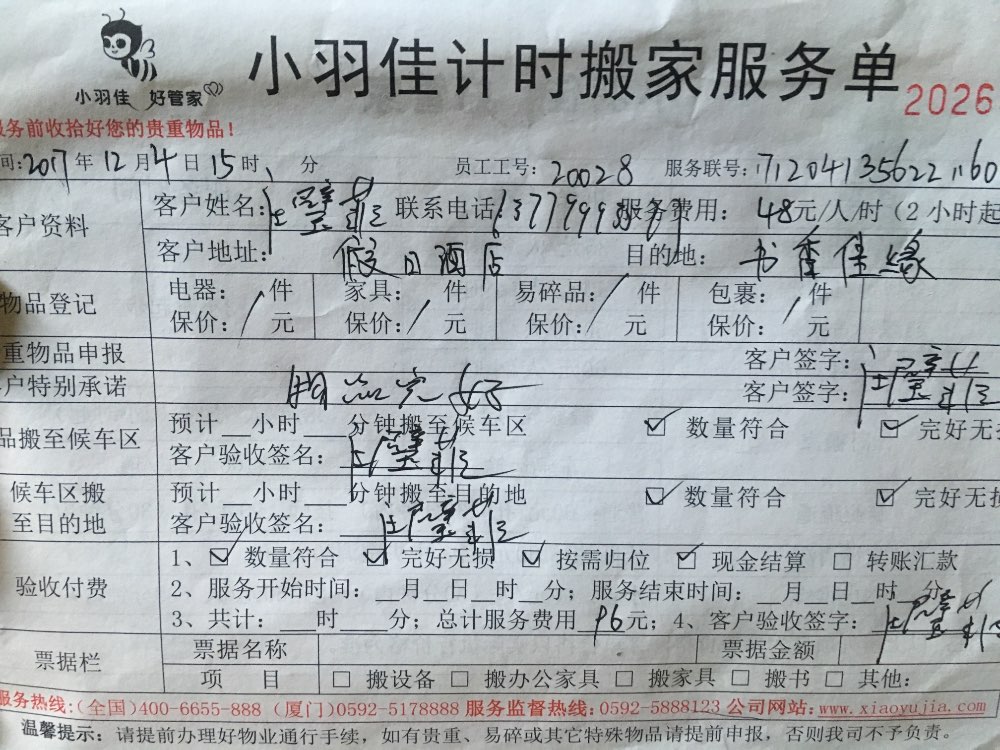 小羽佳 好管家
小羽佳计时搬家服务单
2026
服务前收拾好您的贵重物品！
间:2017年12月4日15时 分 员工工号:20028 服务联号:
客户资料 客户姓名: 联系电话: 服务费用: 48元/人/时(2小时起
客户地址: 假日酒店 目的地: 书香佳缘
物品登记 电器: / 件 家具: / 件 易碎品: / 件 包裹: / 件
保价: 元 保价: 元 保价: 元 保价: 元
重物品申报 客户签字:
户特别承诺 物品完好 客户签字:
品搬至候车区 预计__小时___分钟搬至候车区 ☑ 数量符合 ☑ 完好无损
客户验收签名:
候车区搬 预计__小时___分钟搬至目的地 ☑ 数量符合 ☑ 完好无损
至目的地 客户验收签名:
验收付费 1、☑ 数量符合 ☑ 完好无损 ☑ 按需归位 ☑ 现金结算 □ 转账汇款
2、服务开始时间:__月__日__时__分；服务结束时间:__月__日__时__分
3、共计:___时___分；总计服务费用 96元；4、客户验收签字:
票据栏 票据名称 票据金额
项 目 □ 搬设备 □ 搬办公家具 □ 搬家具 □ 搬书 □ 其他:
服务热线:(全国)400-6655-888 (厦门)0592-5178888 服务监督热线:0592-5888123 公司网站:www.xiaoyujia.com
温馨提示: 请提前办理好物业通行手续，如有贵重、易碎或其它特殊物品请提前申报，否则我司不予负责。